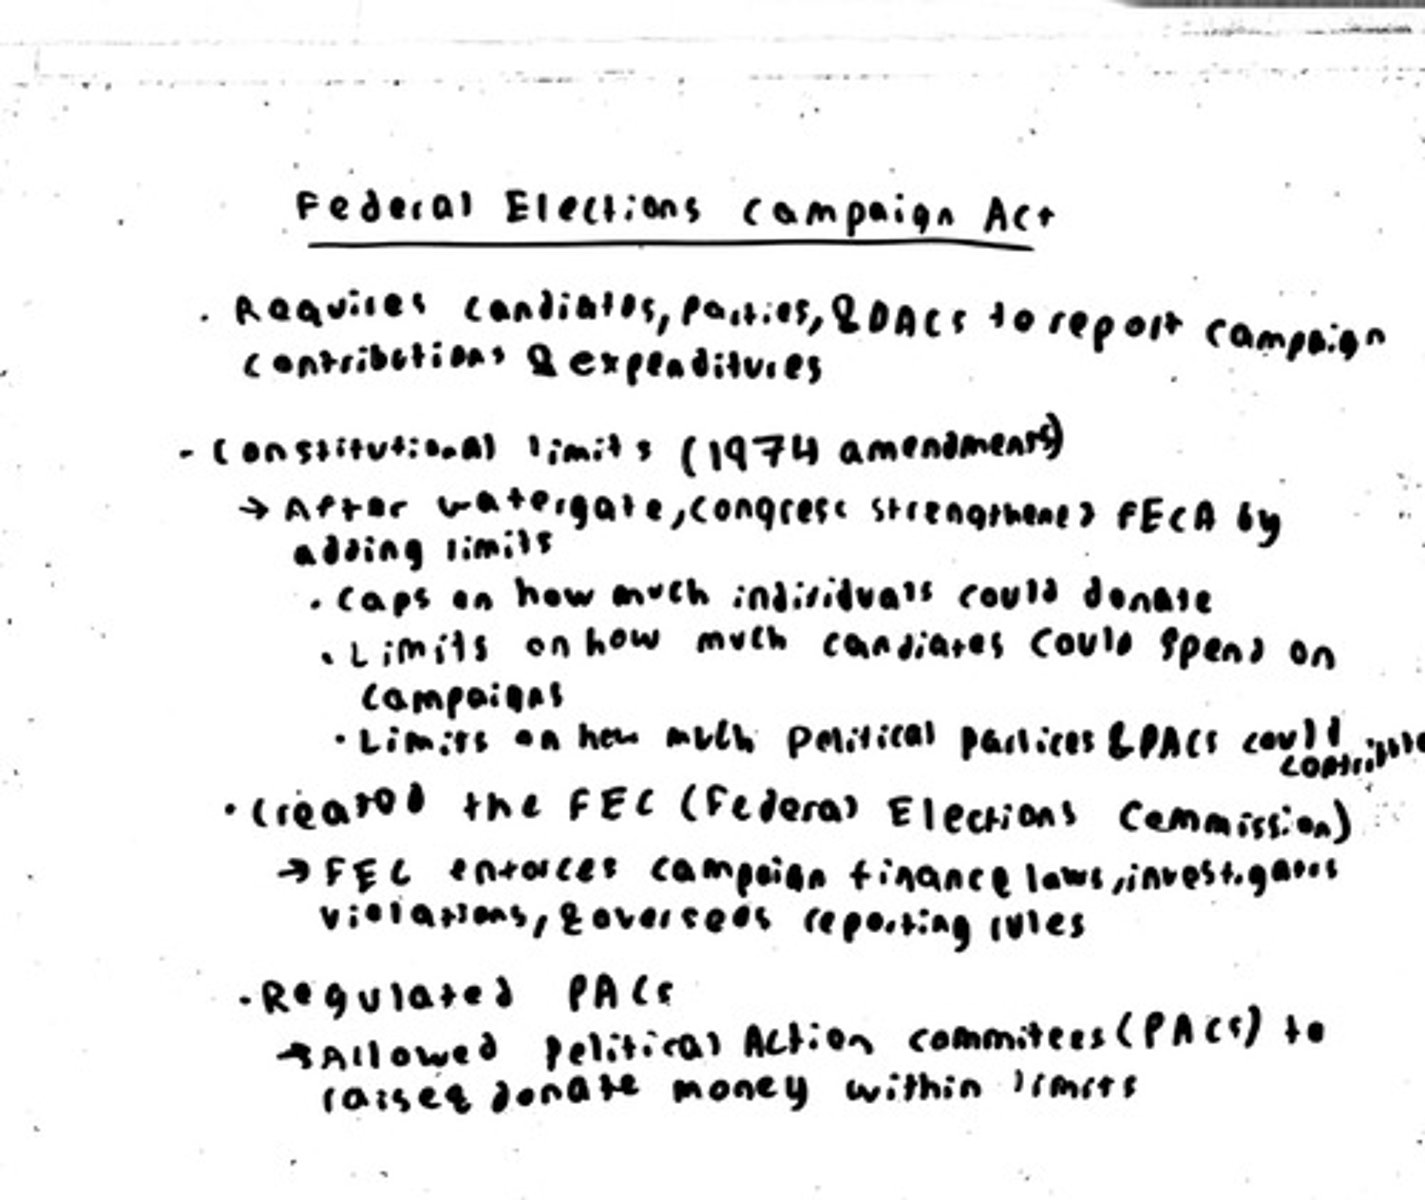 Federal Elections Campaign Act
· Requires candiates, parties, & PACs to report campaign
contributions & expenditures
- Constitutional limits (1974 amendments)
→ After watergate, congress strengthened FECA by
adding limits
· Caps on how much individuals could donate
· Limits on how much candiates could spend on
campaigns
· Limits on how much political partices & PACs could
contribute
· Created the FEC (Federal Elections Commission)
→ FEC enforces campaign finance laws, investigates
violations, & oversees reporting rules
· Regulated PACs
→ Allowed political Action commitees (PACs) to
raise & donate money within limits